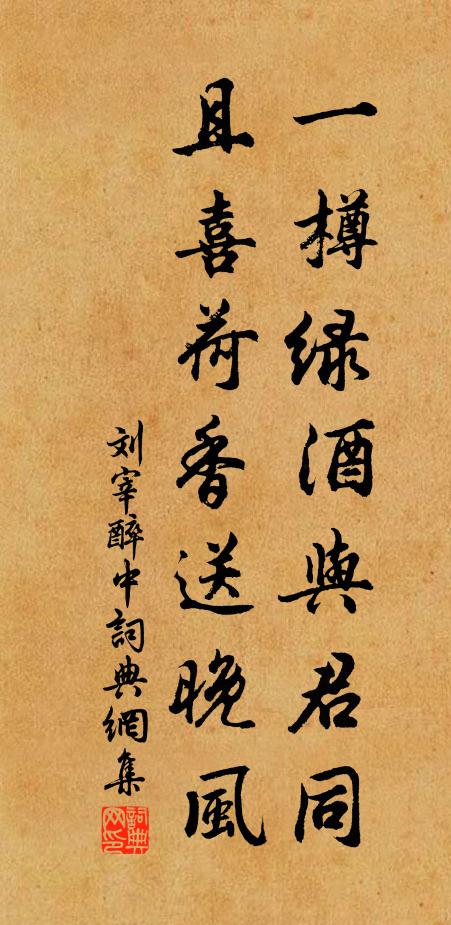 一樽绿酒與君同
且喜荷香送晚風
刘宰醉中詞典網集
詞典網印